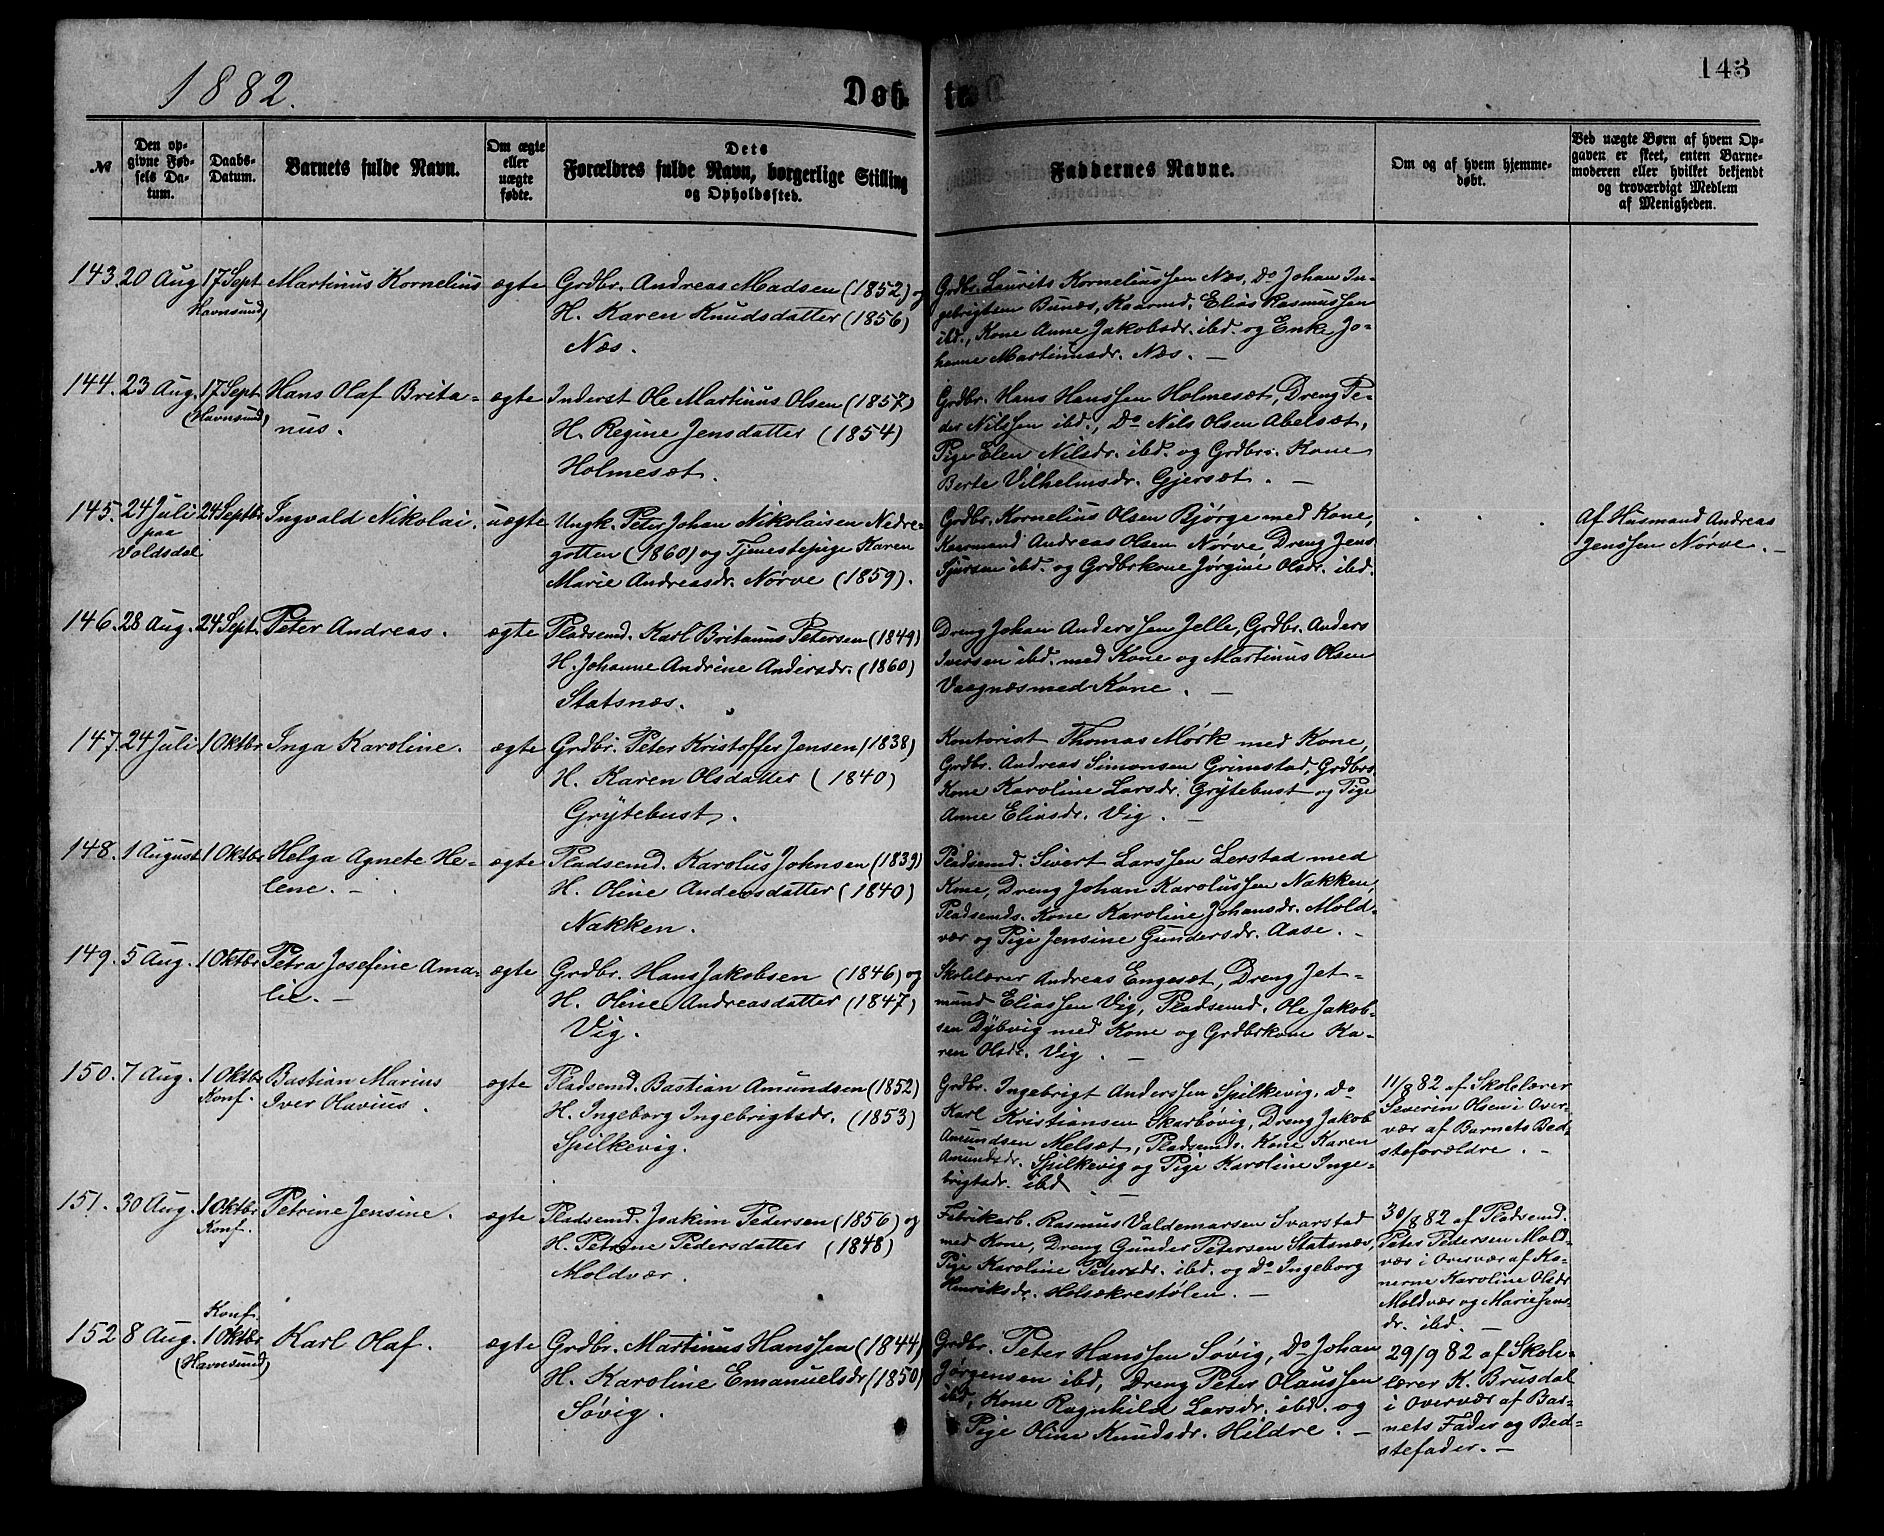 1882.
Døb- te
143
№
Den op-
givne Fød-
sels Da-
tum.
Daabs-
Datum.
Barnets fulde Navn.
Om ægte
eller
uægte
fødte.
Dets
Forældres fulde Navn, borgerlige Stilling
og Opholdssted.
Faddernes Navne.
Om og af hvem hjemme-
døbt.
Ved uægte Børn af hvem Op-
gaven er skeet, enten Barne-
moderen eller hvilket bekjendt
og troværdigt Medlem
af Menigheden.
143. 20 Aug 17 Sept Martinus Kornelius ægte
(Havnsund)
Grdbr. Andreas Madsen (1852) og
H. Karen Knudsdatter (1856)
Næs.
Grdbr. Laurits Korneliussen Næs, Do Johan In-
gebrigtsen Bunæs, Kaarmd. Elias Rasmussen
ibd., Kone Anne Jakobsdr. ibd. og Enke Jo-
hanne Martinusdr. Næs. —
144. 23 Aug. 17 Sept. Hans Olaf Brita- ægte
(Havnsund) nus.
Inderst Ole Martinus Olsen (1857)
H. Regine Jensdatter (1854)
Holmesæt.
Grdbr. Hans Hanssen Holmesæt, Dreng Pe-
der Nilssen ibd., Do Nils Olsen Abelsæt,
Pige Elen Nilsdr. ibd. og Grdbrs. Kone
Berte Vilhelmsdr. Gjersæt. —
145. 24 Juli 24 Septbr. Ingvald Nikolai. uægte
paa
Voldsdal
Ungk. Peter Johan Nikolaisen Nedre-
gotten (1860) og Tjenestepige Karen
Marie Andreasdr. Nørve (1859).
Grdbr. Kornelius Olsen Bjørge med Kone,
Kaarmand Andreas Olsen Nørve, Dreng Jens
Sjursen ibd. og Grdbrkone Jørgine Olsdr. ibd.
Af Husmand Andreas
Jenssen Nørve. —
146. 28 Aug. 24 Sept. Peter Andreas. ægte
Pladsemd. Karl Britanus Petersen (1849)
H. Johanne Andrine Andersdr. (1860)
Statsnæs.
Dreng Johan Anderssen Jelle, Grdbr. Anders
Iversen ibd. med Kone og Martinus Olsen
Vaagnæs med Kone. —
147. 24 Juli 1 Oktbr. Inga Karoline. ægte
Grdbr. Peter Kristoffer Jensen (1838)
H. Karen Olsdatter (1840)
Grÿtebust.
Kontorist Thomas Mørk med Kone,
Grdbr. Andreas Simonsen Grimstad, Grdbrs.
Kone Karoline Larsdr. Grÿtebust og Pige
Anne Eliasdr. Vig. —
148. 1 August 1 Oktbr. Helga Agnete He- ægte
lene. —
Pladsemd. Karolus Johnsen (1839)
H. Oline Andersdatter (1840)
Nakken.
Pladsemd. Sivert Larssen Lerstad med
Kone, Dreng Johan Karolussen Nakken,
Pladsemds. Kone Karoline Johansdr. Mold-
vær og Pige Jensine Gundersdr. Aase. —
149. 5 Aug. 1 Oktbr. Petra Josefine Ama- ægte
lie. —
Grdbr. Hans Jakobsen (1846) og
H. Oline Andreasdatter (1847)
Vig.
Skolelærer Andreas Engeset, Dreng Jet-
mund Eliassen Vig, Pladsemd. Ole Jakob-
sen Dÿbvig med Kone og Grdbrkone Ka-
ren Olsdr. Vig. —
150. 7 Aug. 1 Oktbr. Bastian Marius ægte
Konf. Iver Olavius.
Pladsemd. Bastian Amundsen (1852)
H. Ingeborg Ingebrigtsdr. (1853)
Spilkevig.
Grdbr. Ingebrigt Anderssen Spilkevig, Do
Karl Kristiansen Skarbøvig, Dreng Jakob
Amundsen Melsæt, Pladsemds. Kone Karen
Amundsdr. Spilkevig og Pige Karoline Inge-
brigtsdr. ibd. —
11/8 82 af Skolelærer
Severin Olsen i Over-
vær af Barnets Bed-
steforældre. —
151. 30 Aug. 1 Oktbr. Petrine Jensine. ægte
Konf.
Pladsemd. Joakim Pedersen (1856) og
H. Petrine Pedersdatter (1848)
Moldvær.
Fabrikarb. Rasmus Valdemarsen Svarstad
med Kone, Dreng Gunder Petersen Statsnæs,
Pige Karoline Petersdr. ibd. og Do Ingeborg
Henriksdr. Holsækrestølen. —
30/8 82 af Pladsemd.
Peter Pedersen Mold-
vær i Overvær af Ko-
nerne Karoline Olsdr.
Moldvær og Marie Jens-
dr. ibd. —
Konf.
152 8 Aug. 1 Oktbr. Karl Olaf. ægte
(Havnsund)
Grdbr. Martinus Hanssen (1844)
H. Karoline Emanuelsdr (1850)
Søvig.
Grdbr. Peter Hanssen Søvig, Do Johan
Jørgensen ibd, Dreng Peter Olaussen
ibd, Kone Ragnhild Larsdr. ibd. og
Pige Oline Knudsdr. Hildre. —
29/9 82 af Skole-
lærer K. Brusdal
i Overvær af Bar-
nets Fader og Bed-
stefader. —